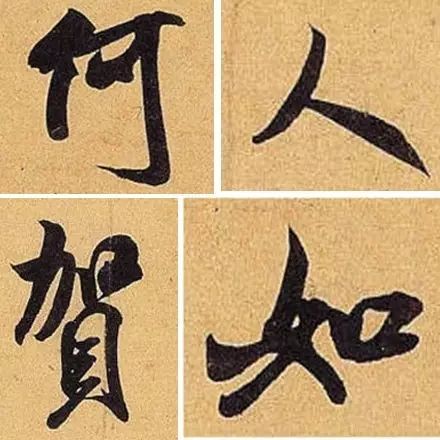 何人
賀如